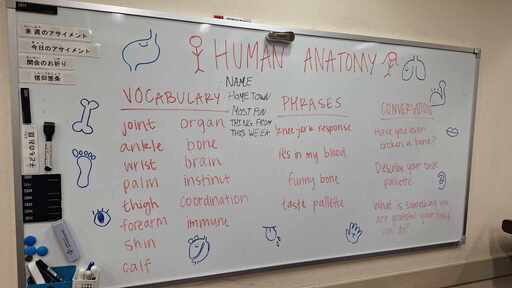 来週のアサイメント
今日のアサイメント
開会のお祈り
信仰箇条
HUMAN ANATOMY
NAME
HOMETOWN
MOST FUN
THING FROM
THIS WEEK
VOCABULARY
joint organ
ankle bone
wrist brain
palm instinct
thigh coordination
forearm immune
shin
calf
PHRASES
knee jerk response
it's in my blood
funny bone
taste pallette
CONVERSATION
Have you ever
broken a bone?
Describe your taste
pallette
What is something you
are grateful your body
can do?